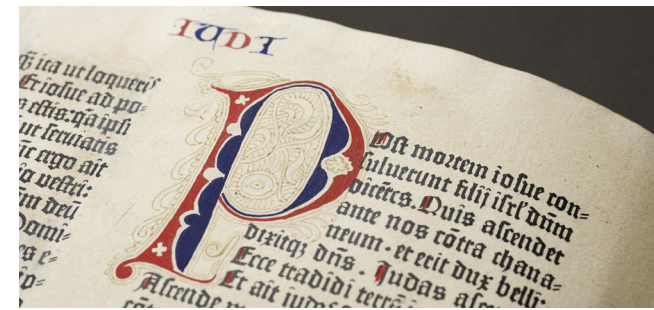 IUDI
ita ut loqueris
Et iosue ad po=
estis: q̄a ipsi
ut seruiatis
ergo ait
vestri:
deū
Domi=
Post mortem iosue con=
suluerunt filij isrl' dñm
dicētes. Quis ascendet
ante nos cōtra chana=
neum · et erit dux belli:
dixitqʒ dñs. Judas
Ecce tradidi terrā
Et ait iudas
Ascende